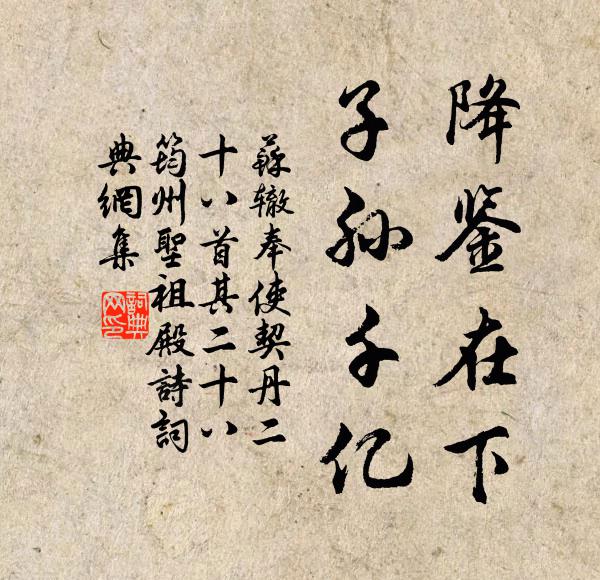 降鉴在下
子孙千亿
蘇辙奉使契丹二
十八首其二十八
筠州聖祖殿詩詞
典網集
詞典网印